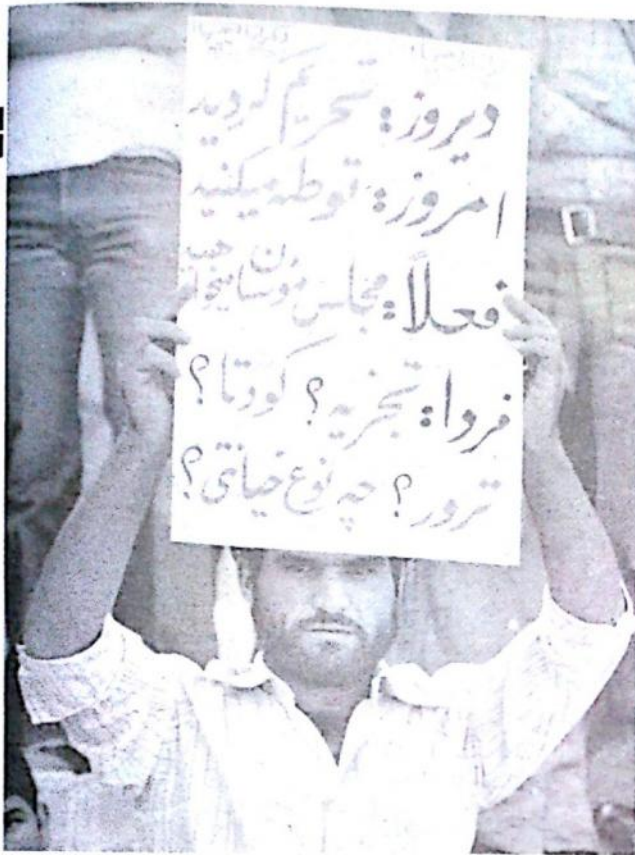 دیروز: تحریم کردید
امروز: توطئه میکنید
فعلاً: مجلس مؤسسان میخواهید
فردا: تجزیه؟ کودتا؟
ترور؟ چه نوع خیانتی؟